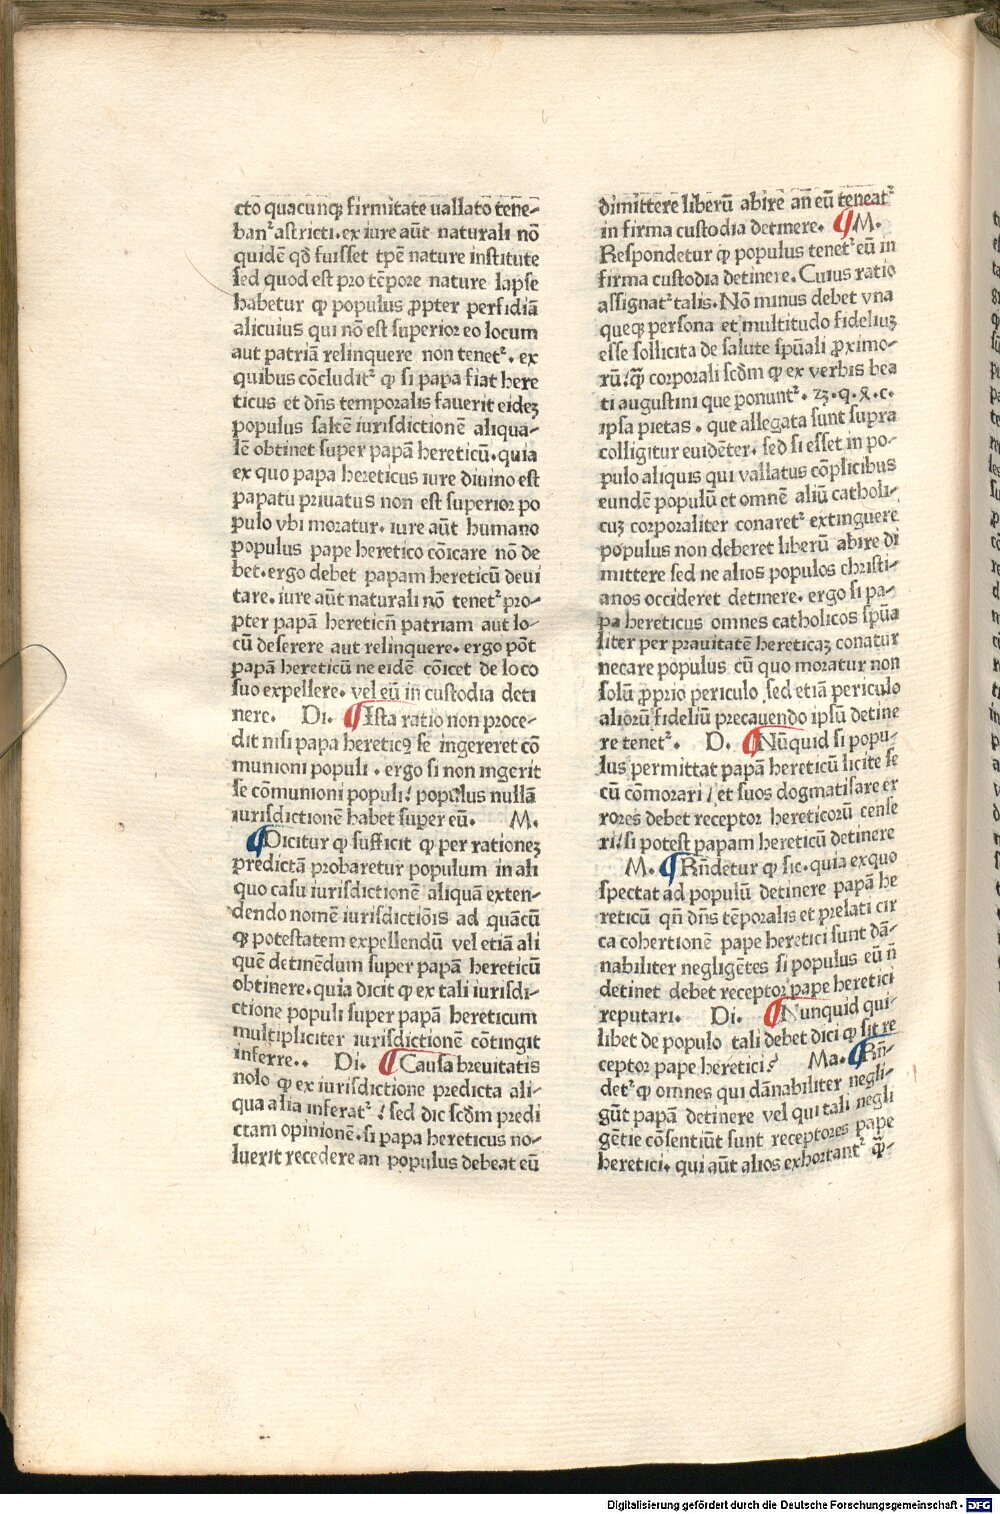 cto quacunq; firmitate uallato tene-
banꝰ astricti. ex iure aūt naturali nō
quidē qđ fuisset tp̄e nature institute
sed quod est pro tēpore nature lapse
habetur ꝙ populus ꝓpter perfidiā
alicuius qui nō est superior eo locum
aut patriā relinquere non tenet². ex
quibus cōcludit² ꝙ si papa fiat here
ticus et dn̄s temporalis fauerit eidez
populus saltē iurisdictionē aliqua-
lē obtinet super papā hereticū. quia
ex quo papa hereticus iure diuino est
papatu priuatus non est superior po
pulo vbi moratur. iure aūt humano
populus pape heretico cōicare nō de
bet. ergo debet papam hereticū deui
tare. iure aūt naturali nō tenet² pro-
pter papā hereticū patriam aut lo-
cū deserere aut relinquere. ergo pōt
papā hereticū ne eidē cōicet de loco
suo expellere. vel eū in custodia deti
nere. Di. ¶Ista ratio non proce-
dit nisi papa hereticꝯ se ingereret cō
munioni populi. ergo si non ingerit
se cōmunioni populi/ populus nullā
iurisdictionē habet super eū. M.
¶Dicitur ꝙ sufficit ꝙ per rationez
predictā probaretur populum in ali
quo casu iurisdictionē aliquā exten-
dendo nomē iurisdictiōis ad quācū
q; potestatem expellendū vel etiā ali
quē detinēdum super papā hereticū
obtinere. quia dicit ꝙ ex tali iurisdi-
ctione populi super papā hereticum
multipliciter iurisdictionē cōtingit
inferre.. Di. ¶Causa breuitatis
nolo ꝙ ex iurisdictione predicta ali-
qua alia inferat²/ sed dic scd̄m predi
ctam opinionē. si papa hereticus no-
luerit recedere an populus debeat eū
dimittere liberū abire an eū teneat²
in firma custodia detinere. ¶M.
Respondetur ꝙ populus tenet² eū in
firma custodia detinere. Cuius ratio
assignat² talis. Nō minus debet vna
queq; persona et multitudo fideliuz
esse sollicita de salute spūali ꝓximo-
rū/ꝙ̄ corporali scd̄m ꝙ ex verbis bea
ti augustini que ponunt². 23. q. 8. c.
ipsa pietas. que allegata sunt supra
colligitur euidēter. sed si esset in po-
pulo aliquis qui vallatus cōplicibus
eundē populū et omnē aliū catholi-
cuz corporaliter conaret² extinguere
populus non deberet liberū abire di
mittere sed ne alios populos christi-
anos occideret detinere. ergo si pa-
pa hereticus omnes catholicos spūa
liter per prauitatē hereticaz conatur
necare populus cū quo moratur non
solū ꝓprio periculo sed etiā periculo
aliorū fideliū precauendo ipsū detine
re tenet². D. ¶Nūquid si popu-
lus permittat papā hereticū licite se
cū cōmorari/et suos dogmatisare er
rores debet receptor hereticorū cense
ri/si potest papam hereticū detinere
M. ¶Rn̄detur ꝙ sic. quia ex quo
spectat ad populū detinere papā he
reticū qn̄ dn̄s tēporalis et prelati cir
ca cohertionē pape heretici sunt dā-
nabiliter negligētes si populus eū n̄
detinet debet receptor pape heretici
reputari. Di. ¶Nunquid qui-
libet de populo tali debet dici ꝙ sit re
ceptor pape heretici? Ma. ¶Rn̄-
det² ꝙ omnes qui dānabiliter negli-
gūt papā detinere vel qui tali negli
gētie cōsentiūt sunt receptores pape
heretici. qui aūt alios exhortant² ꝙ̄-
Digitalisierung gefördert durch die Deutsche Forschungsgemeinschaft - DFG